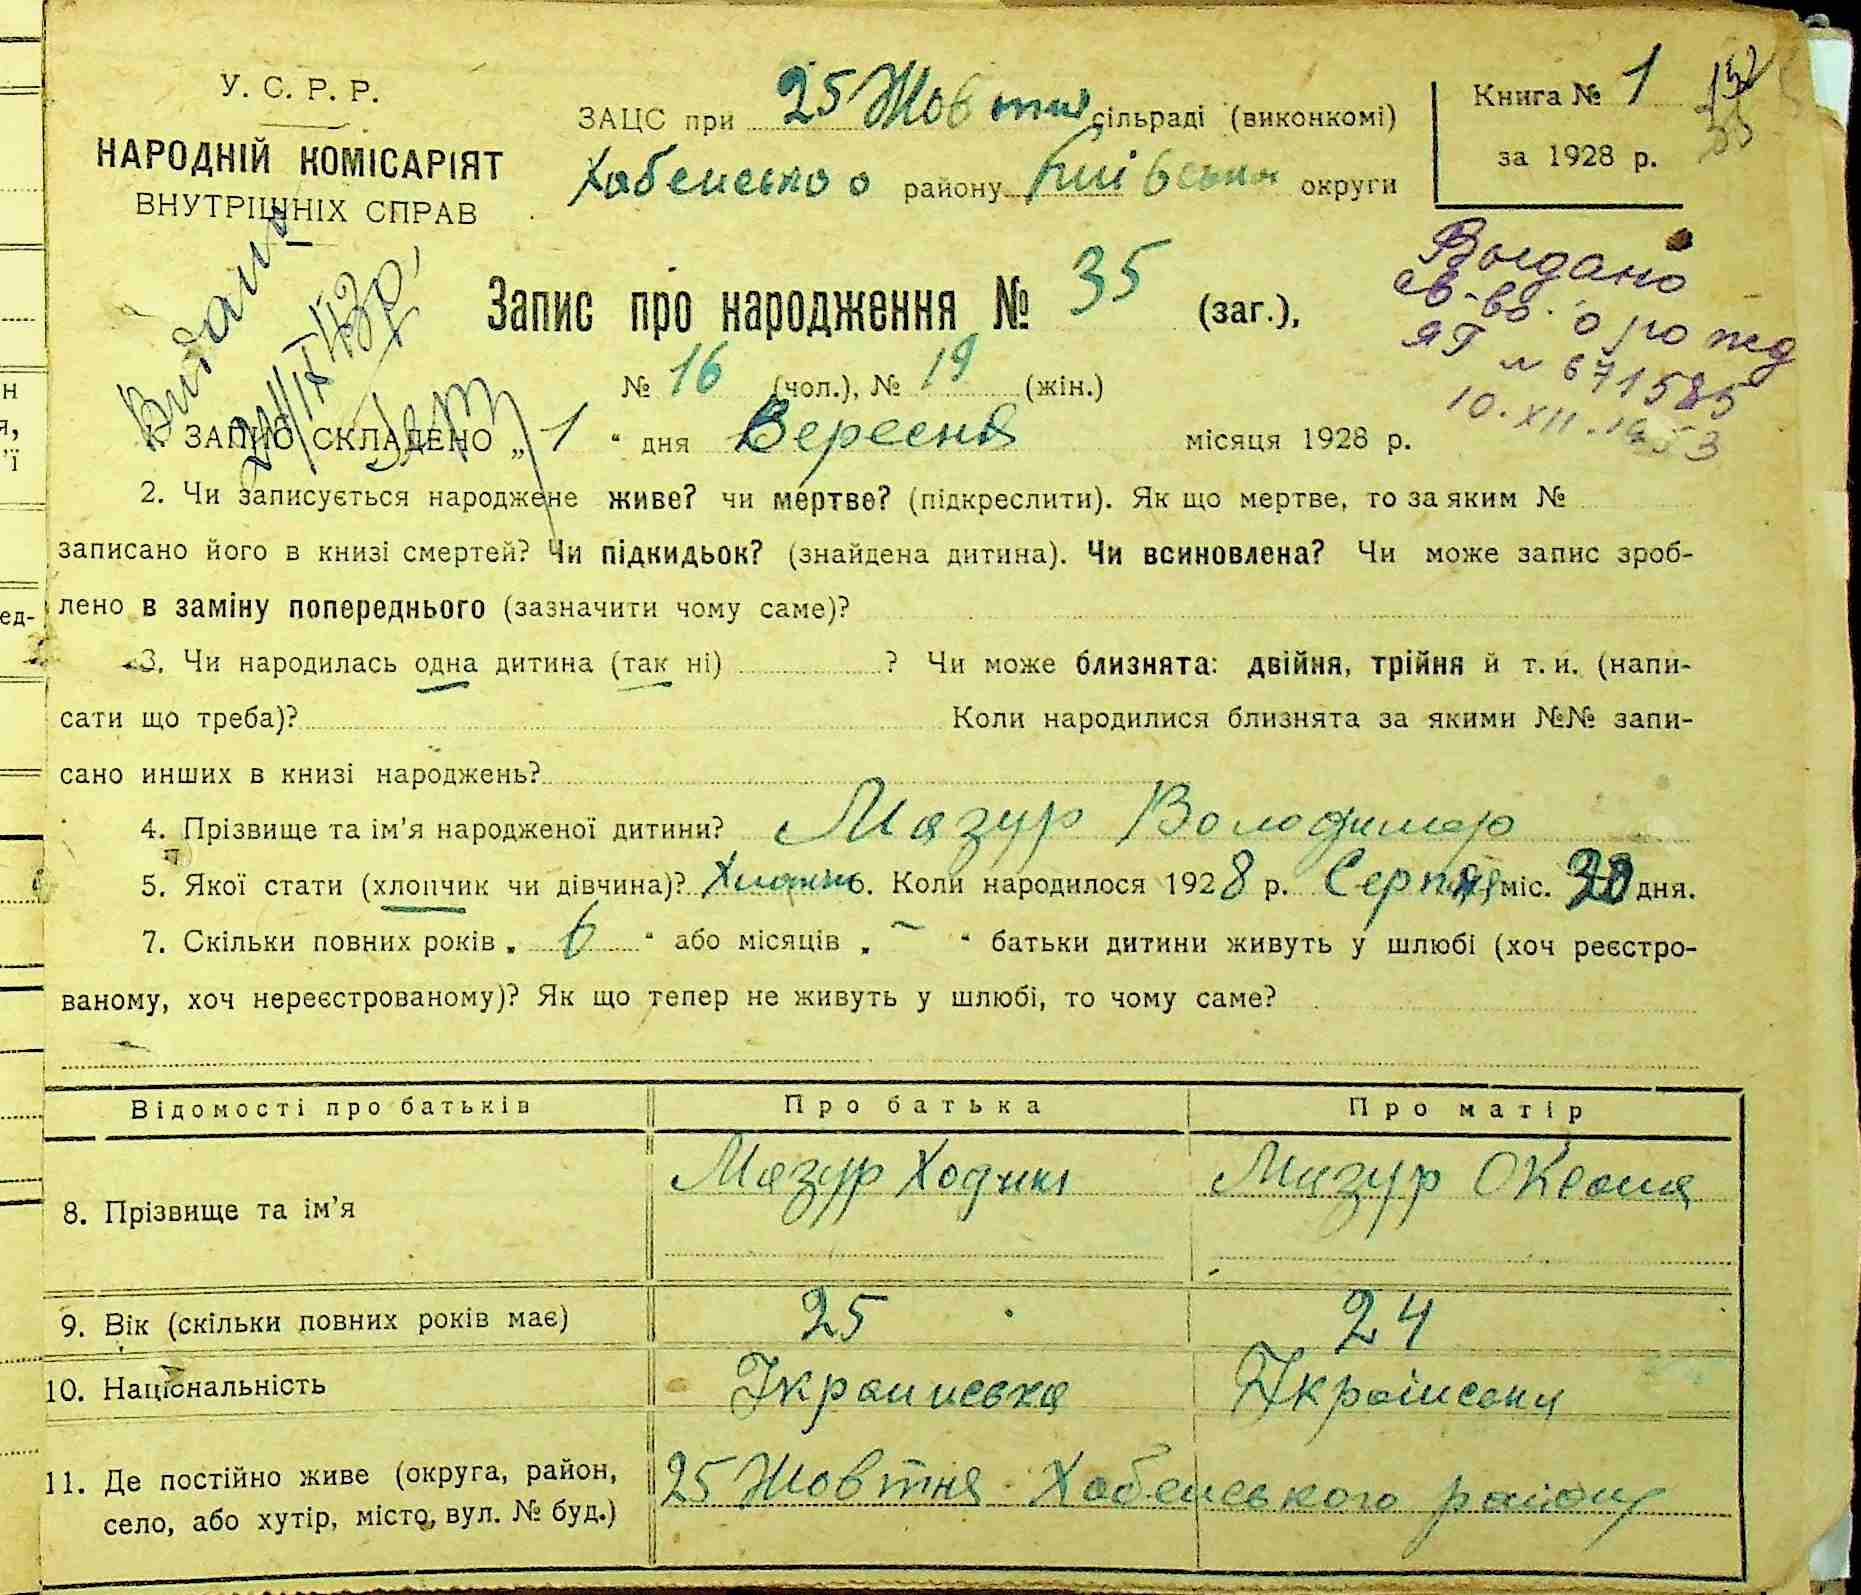 У. С. Р. Р.
НАРОДНІЙ КОМІСАРІЯТ
ВНУТРІШНІХ СПРАВ
ЗАЦС при 25 Жовтня сільраді (виконкомі)
Хабенського району Київська округи
Книга № 1
за 1928 р.
Видано
Выдано
св-во о рожд
ЯГ № 671585
10.XII.1953
Запис про народження № 35 (заг.),
№ 16 (чол.), № 19 (жін.)
1. ЗАПИС СКЛАДЕНО „ 1 “ дня Вересня місяця 1928 р.
2. Чи записується народжене живе? чи мертве? (підкреслити). Як що мертве, то за яким №
записано його в книзі смертей? Чи підкидьок? (знайдена дитина). Чи всиновлена? Чи може запис зроб-
лено в заміну попереднього (зазначити чому саме)?
3. Чи народилась одна дитина (так ні) ? Чи може близнята: двійня, трійня й т. и. (напи-
сати що треба)? Коли народилися близнята за якими №№ запи-
сано инших в книзі народжень?
4. Прізвище та ім’я народженої дитини? Мазур Володимер
5. Якої стати (хлопчик чи дівчина)? 6. Коли народилося 1928 р. Серпня міс. 30 дня.
7. Скільки повних років „ 6 “ або місяців „ – “ батьки дитини живуть у шлюбі (хоч реєстро-
ваному, хоч нереєстрованому)? Як що тепер не живуть у шлюбі, то чому саме?
Відомості про батьків Про батька Про матір
8. Прізвище та ім’я Мазур Мазур
9. Вік (скільки повних років має) 25 24
10. Національність Українська Українська
11. Де постійно живе (округа, район,
село, або хутір, місто, вул. № буд.)
25 Жовтня Хабенського району